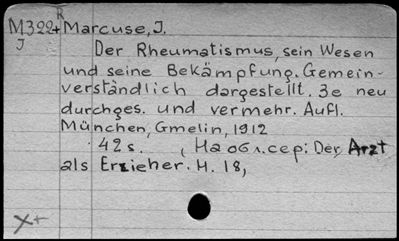 R
M322+ Marcuse, J.
J
Der Rheumatismus, sein Wesen
und seine Bekämpfung. Gemein-
verständlich dargestellt. 3e neu
durchges. und vermehr. Aufl.
München, Gmelin, 1912
42 s. , На обл. сер: Der Arzt
als Erzieher. H. 18,
x+